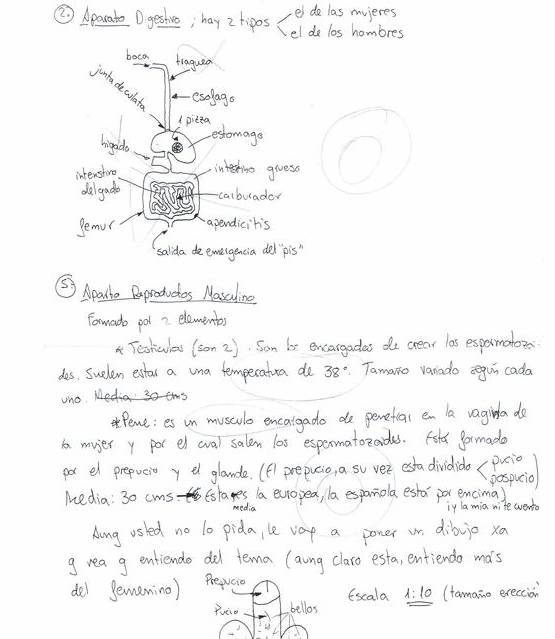 2. Aparato Digestivo ; hay 2 tipos
el de las mujeres
el de los hombres
boca
traquea
junta de culata
esofago
1 pizza
estomago
higado
intenstino delgado
intestino grueso
carburador
femur
apendicitis
salida de emergencia del "pis"
5. Aparto Reproductos Masculino
Formado por 2 elementos
* Testiculos (son 2). Son los encargados de crear los espermatozoi-
des. Suelen estar a una temperatura de 38°. Tamaño variado según cada
uno. Media: 30 cms
* Pene: es un musculo encargado de penetrar en la vagina de
la mujer y por el cual salen los espermatozoides. Está formado
por el prepucio y el glande. (El prepucio, a su vez esta dividido
pucio
pospucio)
Media: 30 cms Esta es la europea, la española está por encima)
media
¡y la mia ni te cuento
Aunq usted no lo pida, le voy a poner un dibujo xa
q vea q entiendo del tema (aunq claro esta, entiendo más
del femenino)
Prepucio
Pucio
bellos
Escala 1:10 (tamaño erección